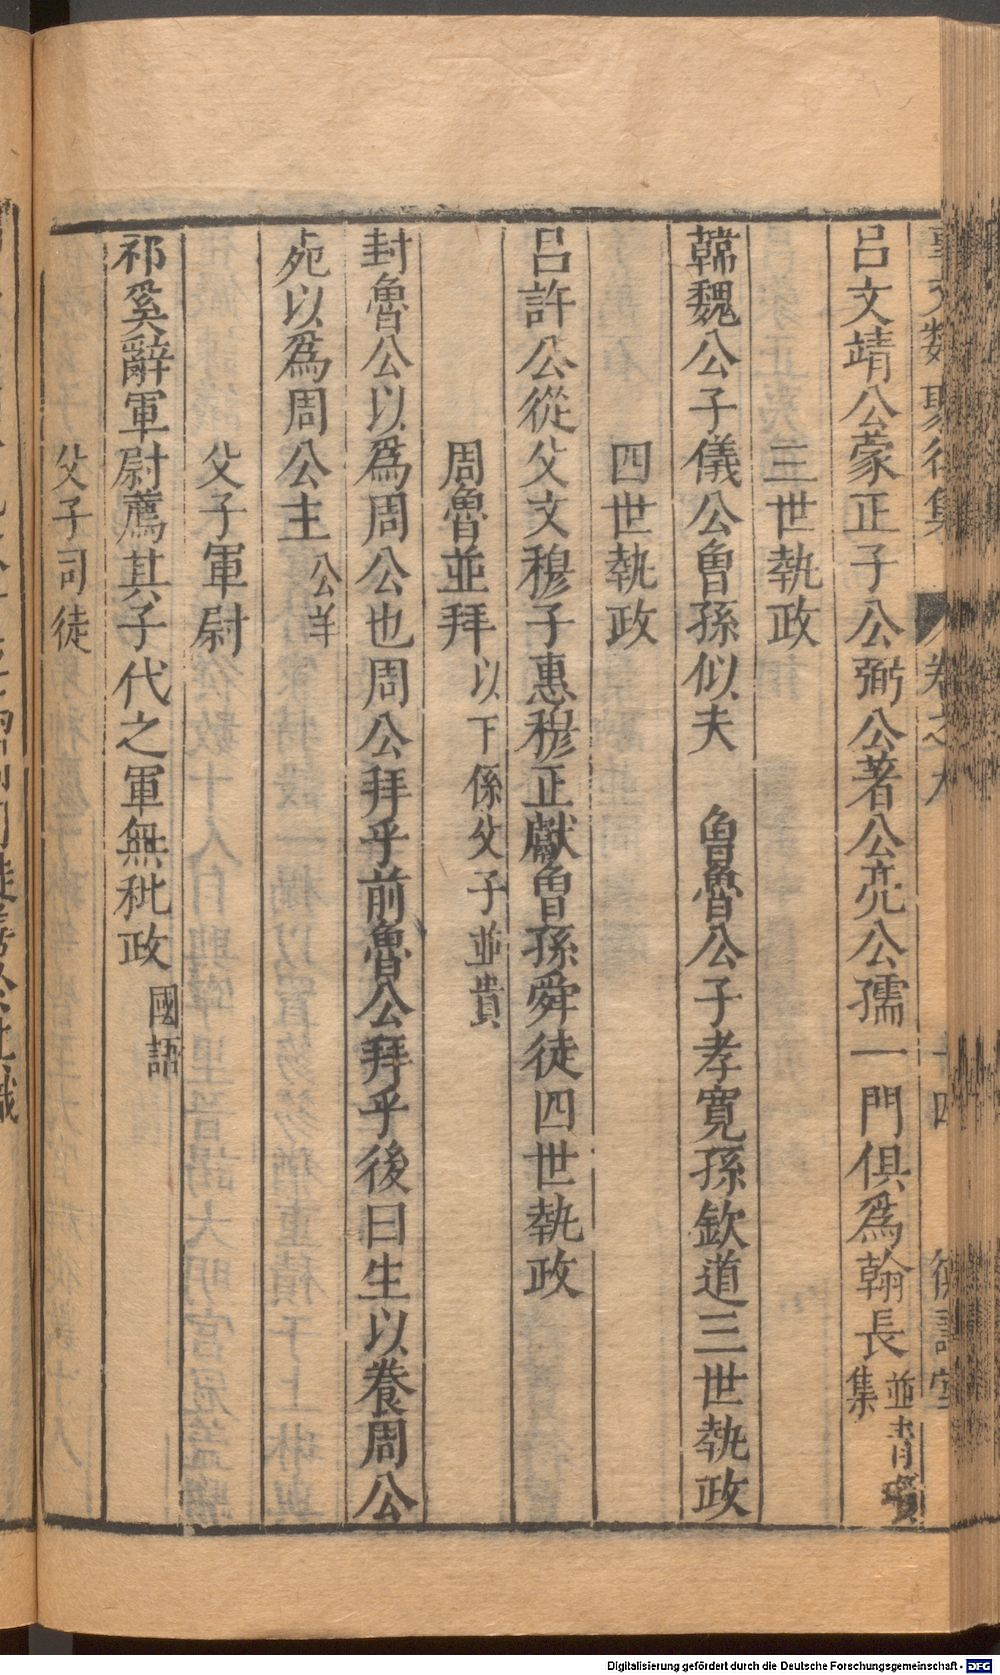 事文類聚後集 卷之九 十四 德壽堂
呂文靖公蒙正子公弼公著公亮公孺一門俱爲翰長並青箱集
三世執政
韓魏公子儀公曾孫似夫 曾魯公子孝寬孫欽道三世執政
四世執政
呂許公從父文穆子惠穆正獻曾孫舜徒四世執政
周魯並拜以下係父子並貴
封魯公以爲周公也周公拜乎前魯公拜乎後曰生以養周公
死以爲周公主公羊
父子軍尉
祁奚辭軍尉薦其子代之軍無秕政國語
父子司徒
Digitalisierung gefördert durch die Deutsche Forschungsgemeinschaft - DFG